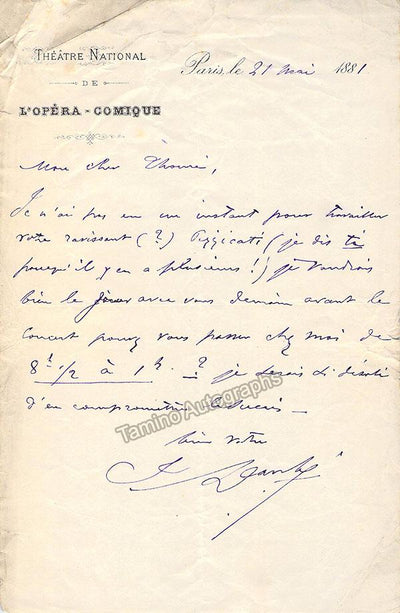 THÉÂTRE NATIONAL
DE
L'OPÉRA-COMIQUE
Paris, le 21 mai 1881
Mon cher Thomé,
Je n'ai pas eu un instant pour travailler
votre ravissant (?) Pizzicati (je dis ti
puisqu'il y en a plusieurs!) je voudrais
bien le jouer avec vous demain avant le
concert pouvez vous passer chez moi de
8h 1/2 à 1h. ? je serais si désolé
d'en compromettre le succès _
bien votre
J Danbé
Tamino Autographs